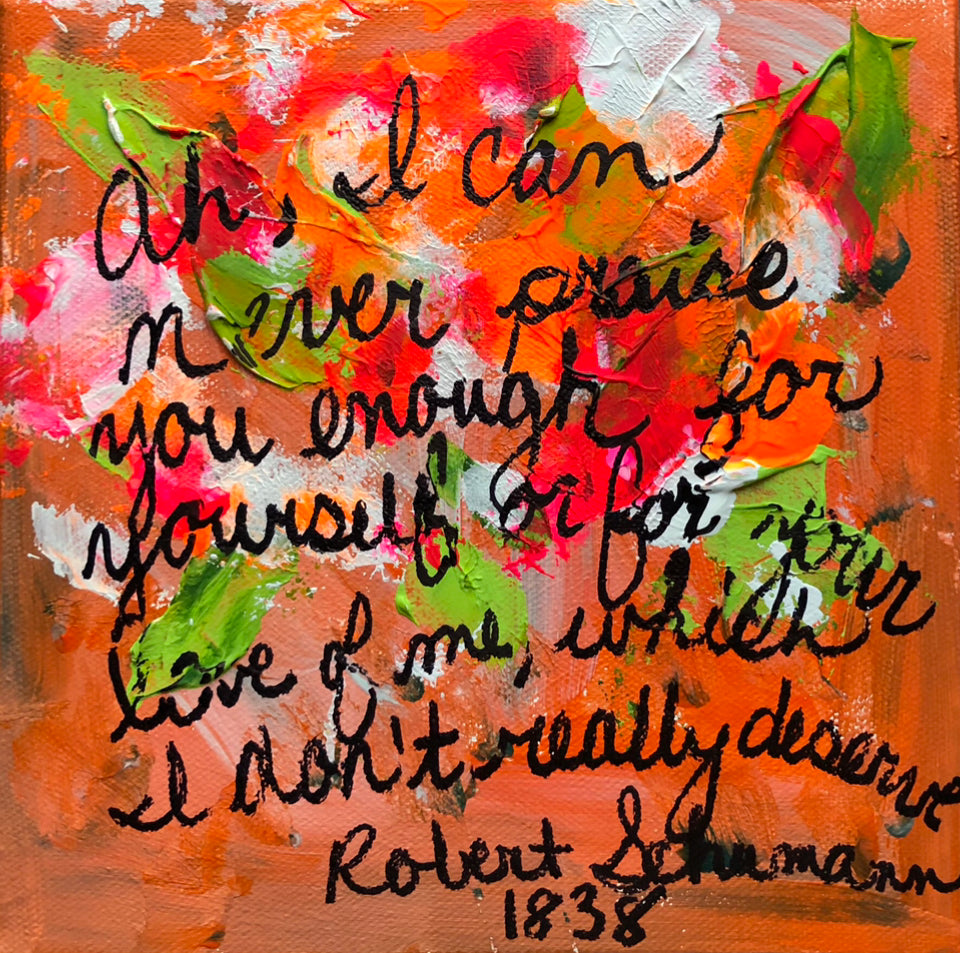 Ah, I can
never praise
you enough for
yourself or for your
love of me, which
I don't really deserve
Robert Schumann
1838